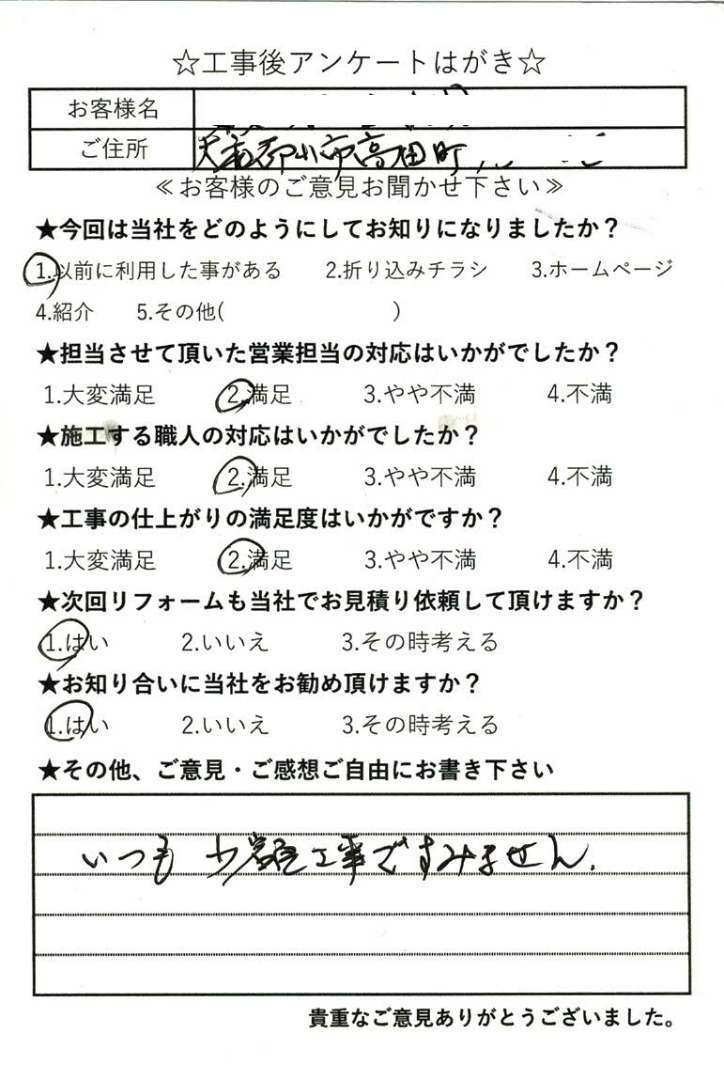 ☆工事後アンケートはがき☆
お客様名
ご住所 大和郡山市高田町
≪お客様のご意見お聞かせ下さい≫
★今回は当社をどのようにしてお知りになりましたか？
1.以前に利用した事がある 2.折り込みチラシ 3.ホームページ
4.紹介 5.その他( )
★担当させて頂いた営業担当の対応はいかがでしたか？
1.大変満足 2.満足 3.やや不満 4.不満
★施工する職人の対応はいかがでしたか？
1.大変満足 2.満足 3.やや不満 4.不満
★工事の仕上がりの満足度はいかがですか？
1.大変満足 2.満足 3.やや不満 4.不満
★次回リフォームも当社でお見積り依頼して頂けますか？
1.はい 2.いいえ 3.その時考える
★お知り合いに当社をお勧め頂けますか？
1.はい 2.いいえ 3.その時考える
★その他、ご意見・ご感想ご自由にお書き下さい
いつも 少額工事ですみません.
貴重なご意見ありがとうございました。